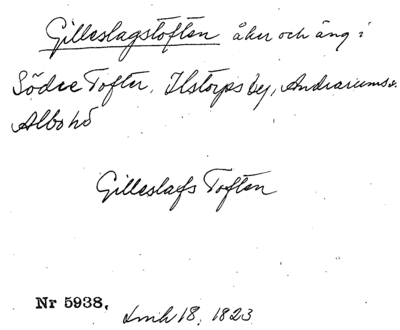 Gilleslagstoften åker och äng i
Södre Tofter, Ilstorps by, Andrarums s.
Albo hd
Gilleslafs Toften
Nr 5938,
18, 1823